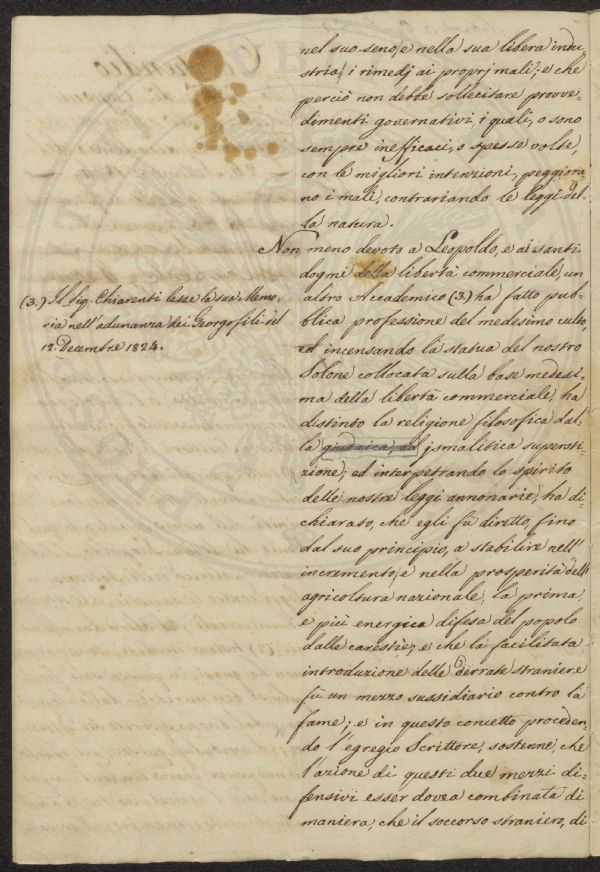 nel suo seno, e nella sua libera indu=
stria, i rimedj ai proprj mali; e che
perciò non debbe sollecitare provve=
dimenti governativi, i quali, o sono
sempre inefficaci, o spesse volte,
con le migliori intenzioni, peggiora=
no i mali, contrariando le leggi del=
la natura.
Non meno devoto a Leopoldo, e ai santi
dogmi della libertà commerciale, un
altro Accademico (3.) ha fatto pub=
blica professione del medesimo culto,
ed incensando la statua del nostro
Solone collocata sulla base medesi=
ma della libertà commerciale, ha
distinto la religione filosofica dal=
la giudaica, ed jsmalitica supersti=
zione; ed interpetrando lo spirito
delle nostre leggi annonarie, ha di=
chiarato, che egli fù diretto, fino
dal suo principio, a stabilire nell'
incremento, e nella prosperità dell'
agricoltura nazionale, la prima,
e più energica difesa del popolo
dalle carestie, e che la facilitata
introduzione delle derrate straniere
fù un mezzo sussidiario contro la
fame; e in questo concetto proceden=
do l'egregio Scrittore, sostenne, che
l'azione di questi due mezzi di=
fensivi esser dovea combinata di
maniera, che il soccorso straniero, di
(3.) Il Sig. Chiarenti lesse la sua Memo=
ria nell'adunanza dei Georgofili del
12. Decembre 1824.